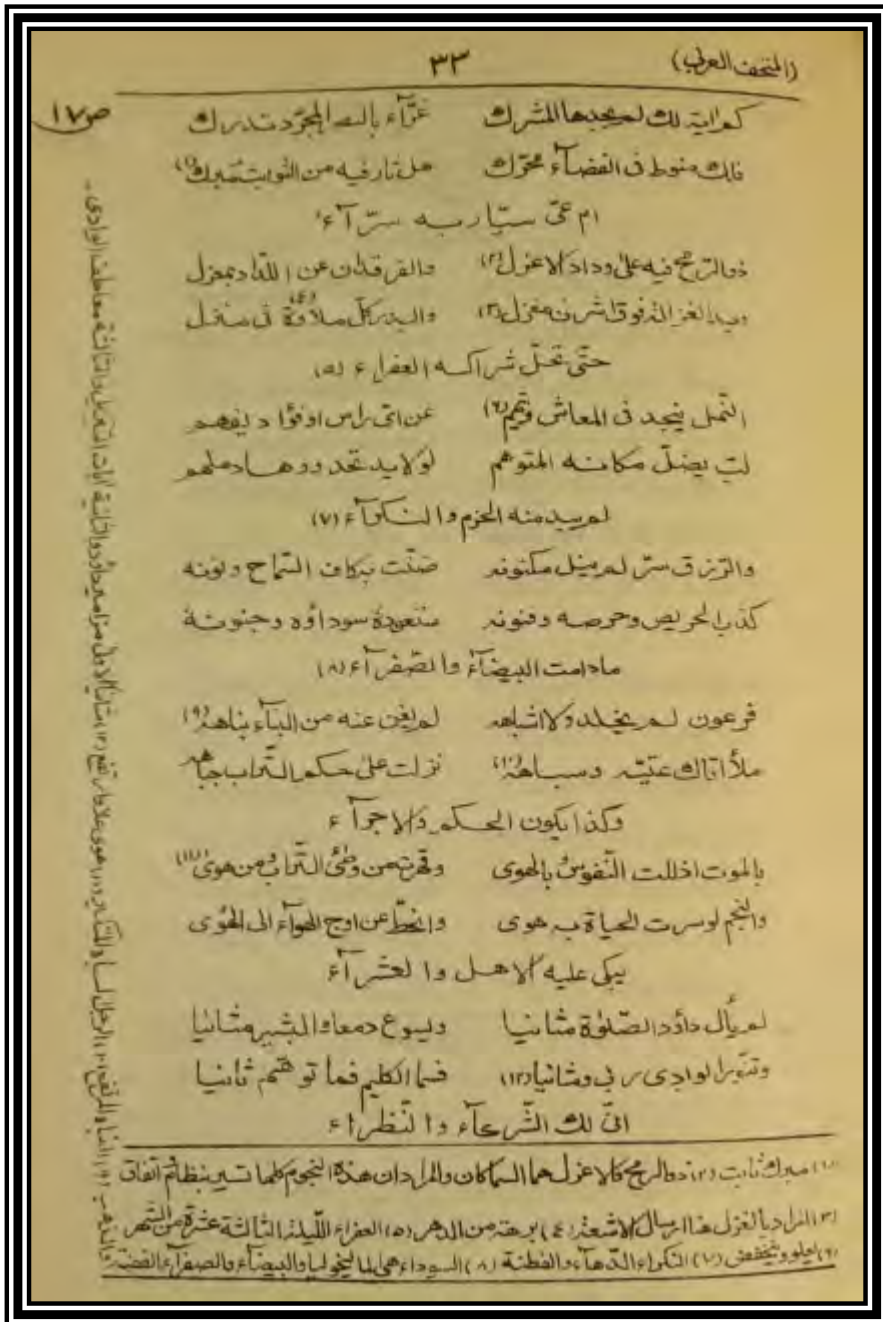 (المتحف العربي) ٣٣
ص ١٧
كم اية لك لم يجدها المشرك غرّاء بالمجرّد تدرك
فلك منوط فى الفضآء محرّك هل ثار فيه من الثوابت مبرك (١)
ام عىّ سيّار به سرّآء
ذو الرمح فيه على وداد الاعزل (٢) والفرقدان عن اللداد بمعزل
الغزالة فوق اشرف مغزل (٣) والبدر كلّ ملاوة (٤) فى منزل
حتّى تحلّ شراكه العفراء (٥)
النّمل ينجد فى المعاش ويتهم (٦) عن اىّ راس او فؤاد يفهم
لب يضلّ مكانه المتوهم لولا يد تحدو وهاد ملهم
لم يبد منه الحزم والنكرآء (٧)
والرزق سرّ لم ينل مكنونه ضنّت بكاف السّماح ونونه
كذب الحريص وحرصه وفنونه سوداؤه وجنونه
مادامت البيضآء والصّفرآء (٨)
فرعون لم يخلد ولا اشباهه لم يغن عنه من البنآء بناهه (٩)
ملأ اتاك عتيّه وسباهه (١٠) نزلت على حكم التّراب جباهه
وكذا يكون الحكم والاجرآء
بالموت اذللت النّفوس بالهوى وقهرت من وطئ التّراب ومن هوى (١١)
والنجم لو سرت الحياة به هوى وانحطّ عن اوج الهوآء الى الهُوى
يبكى عليه الاهل والعشرآء
لم يأل داؤد الصّلوة مثانيا ويسوع دمعا والبشير مثانيا
وتنوّر الوادى ربى ومثانيا (١٢) فسما الكليم فما توهّم ثانيا
انىّ لك الشّرعآء والنّظراء
(١) مبرك ثابت (٢) ذو الرمح والاعزل هما السماكان والمراد ان هذه النجوم كلها تسير بنظام واتفاق
(٣) المراد بالغزل هنا ارسال الاشعة (٤) برهة من الدهر (٥) العفراء الليلة الثالثة عشرة من الشهر
(٦) يعلو وينخفض (٧) النكراء الدّهآء والفطنة (٨) السوداء هى الماليخوليا والبيضآء والصفرآء الفضة
والذهب (٩) البناء المرتفع (١٠) الرجل المتكبر (١١) هوى علا وارتفع (١٢) مثانيا الاولى مزامير داؤد والثانية ايات التنزيل والثالثة معاطف الوادى ـ